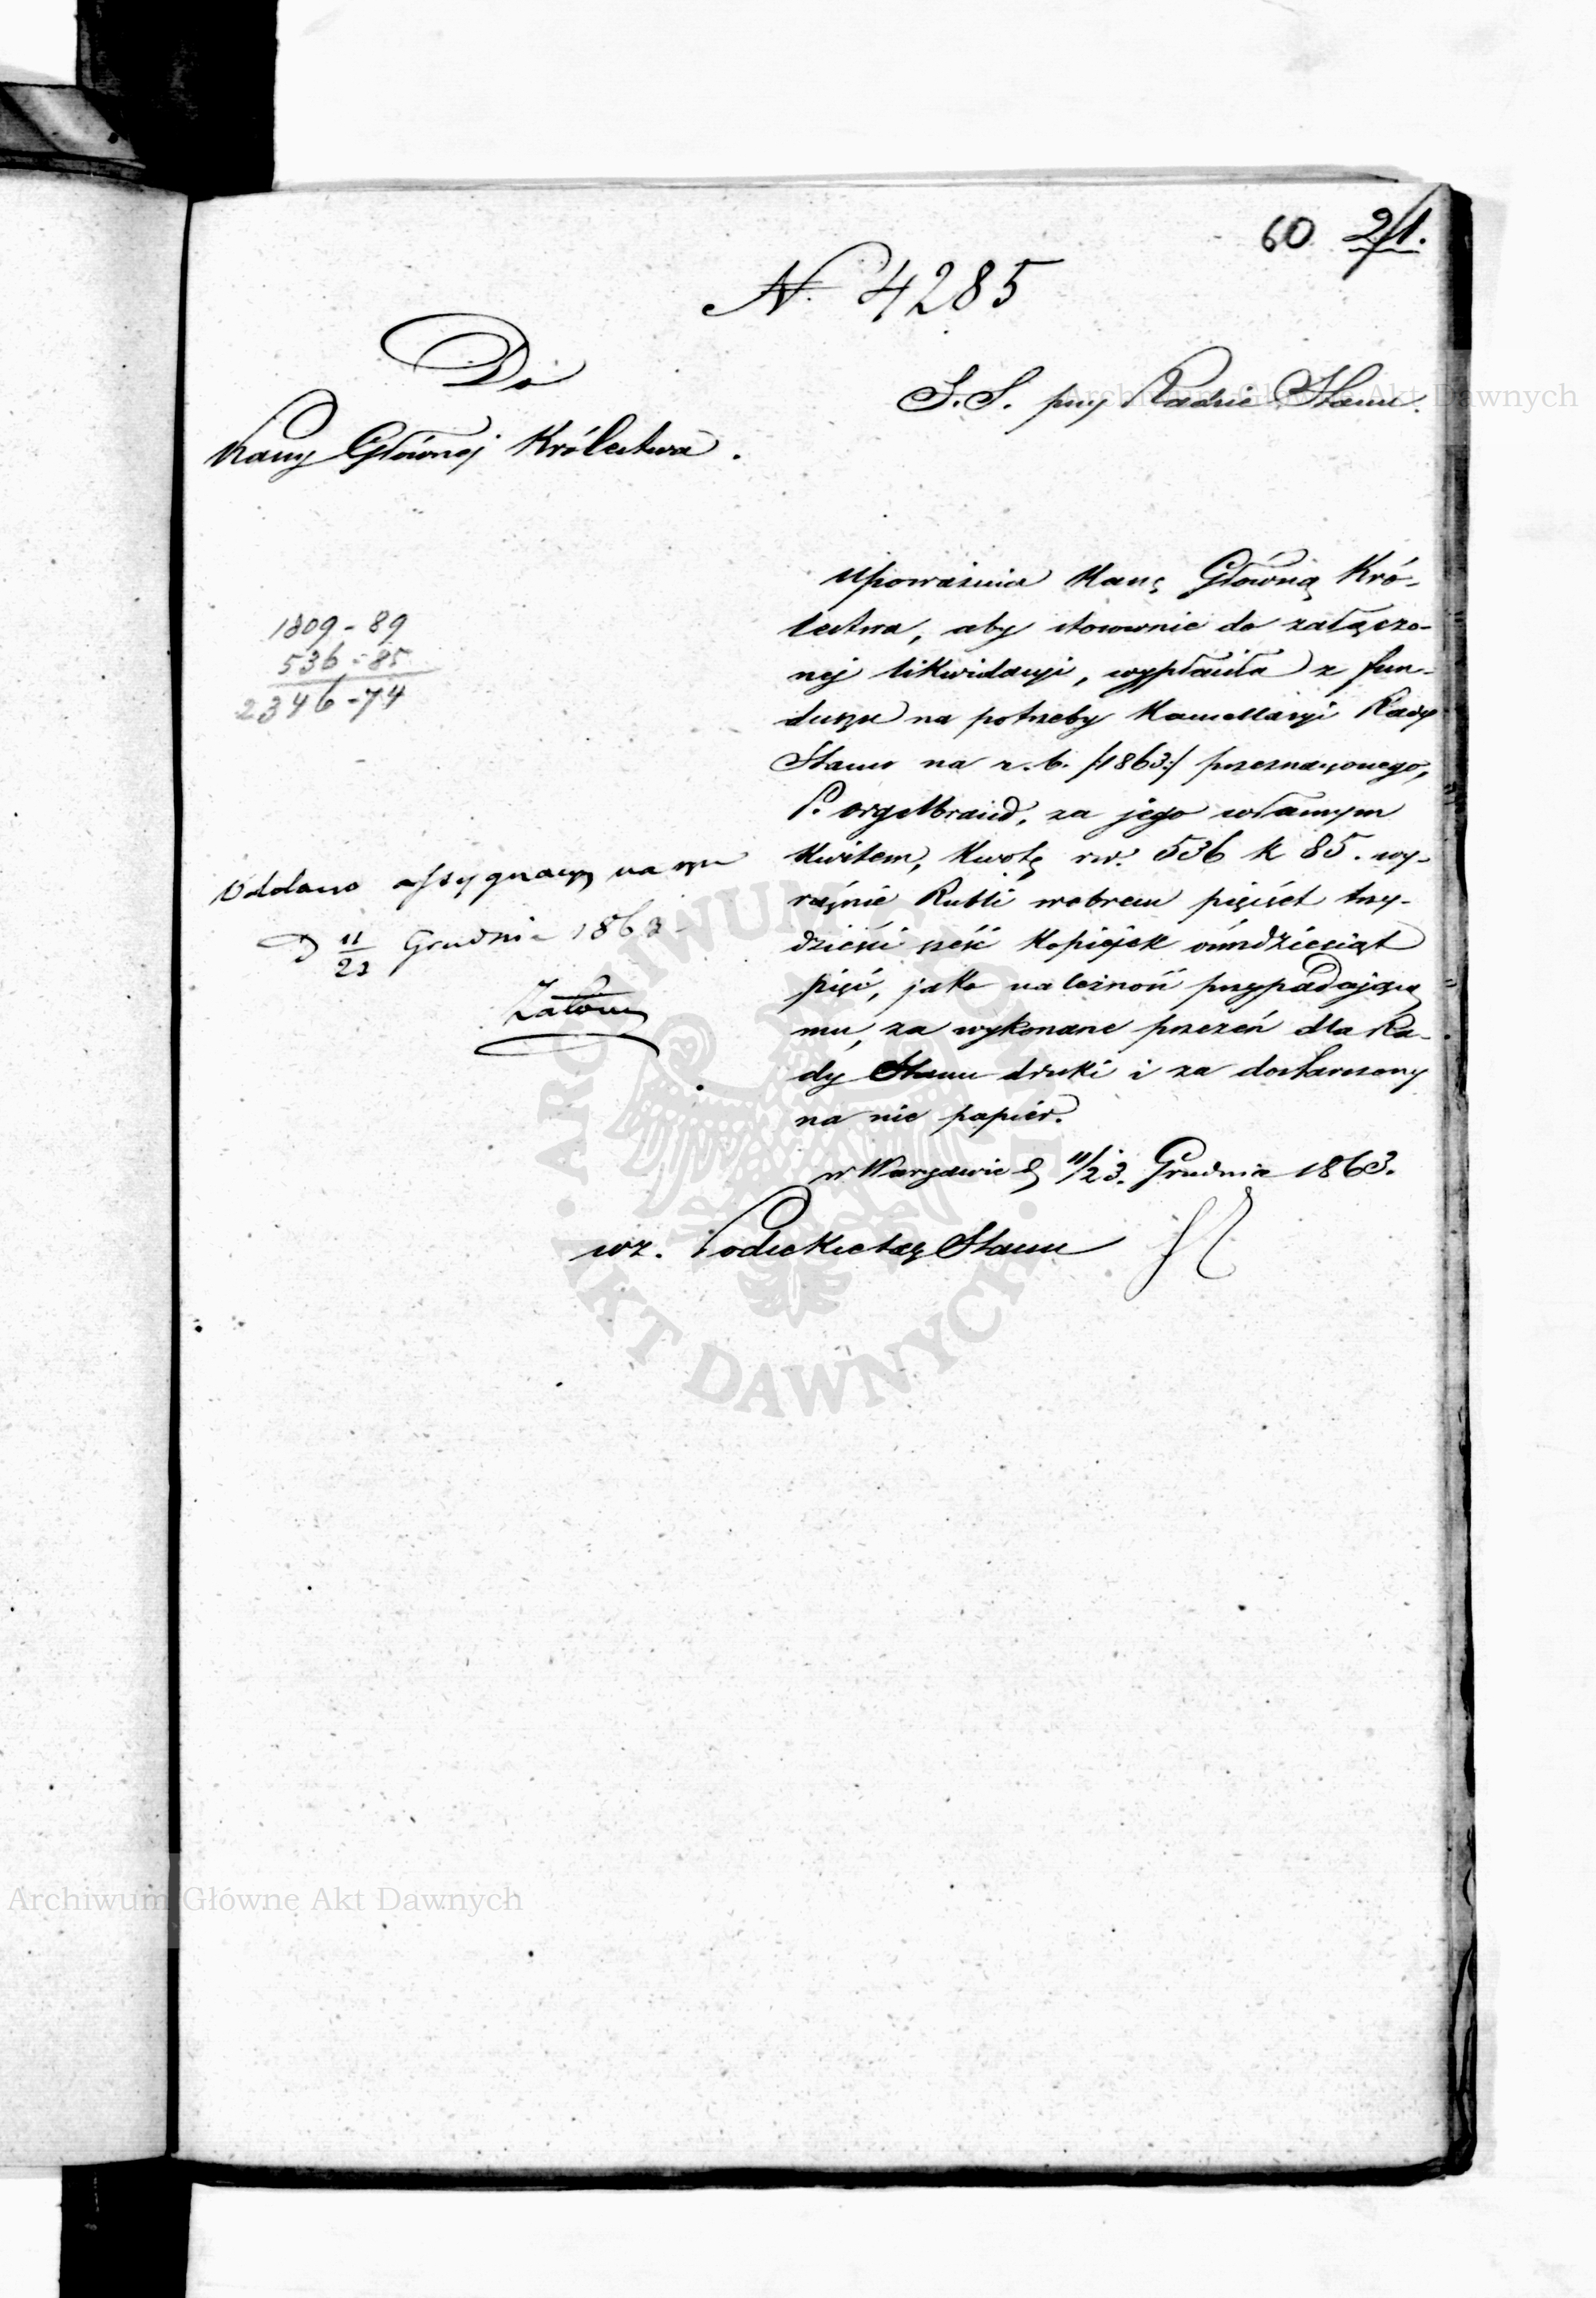 60 21.
N. 4285
Do
Kassy Głównej Królestwa.
S. S. przy Radzie Stanu.
Upoważnia Kassę Główną Kró-
lestwa, aby stosownie do załączo-
nej likwidacyi, wypłaciła z fun-
duszu na potrzeby Kancellaryi Rady
Stanu na r. b. /1863/ przeznaczonego,
P. Orgelbrand, za jego własnym
kwitem, kwotę rs. 536 k 85. wy-
raźnie Rubli srebrem pięćset trzy-
dzieści sześć kopiejek ośmdziesiąt
pięć, jako należność przypadającą
mu, za wykonane przezeń dla Ra-
dy Stanu druki i za dostarczony
na nie papiér.
w Warszawie d 11/23. Grudnia 1863.
wz. Podsekretarz Stanu
1809 - 89
536 - 85
2346 - 74
Oddano assygnacyą na
D 11/23 Grudnia 1863
Archiwum Główne Akt Dawnych
Archiwum Główne Akt Dawnych
ARCHIWUM GŁÓWNE AKT DAWNYCH